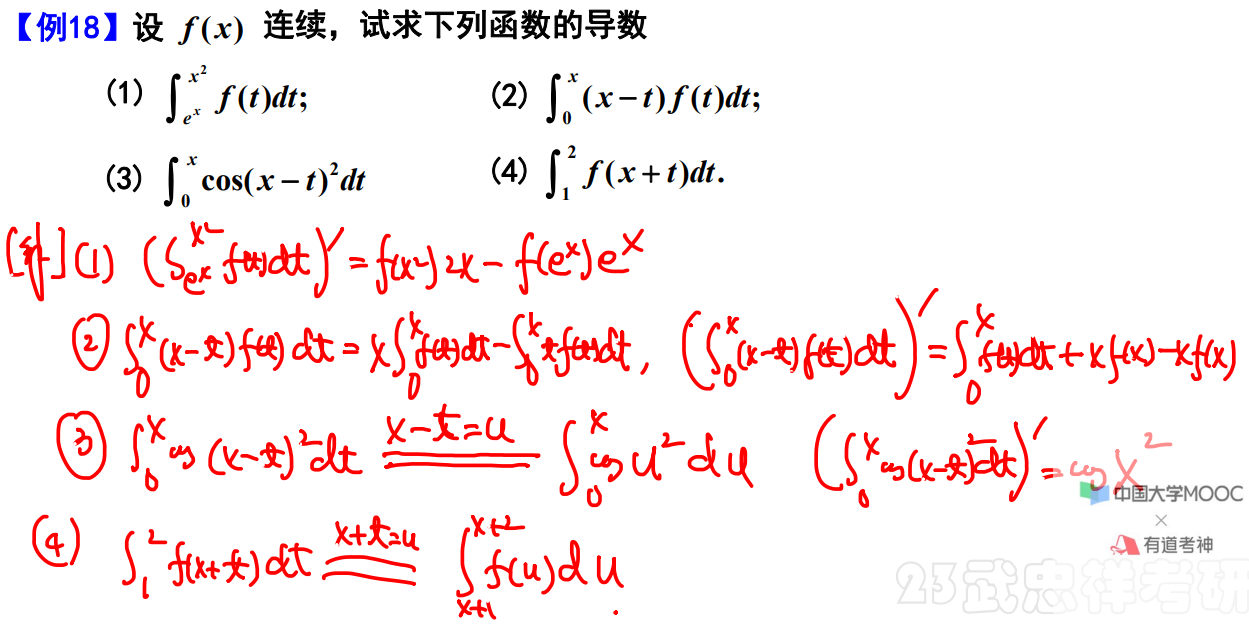 【例18】设 f(x) 连续，试求下列函数的导数
(1) ∫_{e^x}^{x^2} f(t)dt; (2) ∫_0^x (x−t)f(t)dt;
(3) ∫_0^x cos(x−t)^2dt (4) ∫_1^2 f(x+t)dt.
[解](1) (∫_{e^x}^{x^2} f(t)dt)′ = f(x^2)2x − f(e^x)e^x
② ∫_0^x (x−t)f(t)dt = x∫_0^x f(t)dt − ∫_0^x tf(t)dt, (∫_0^x (x−t)f(t)dt)′ = ∫_0^x f(t)dt + xf(x) − xf(x)
③ ∫_0^x cos(x−t)^2dt x−t=u ∫_0^x cos u^2 du (∫_0^x cos(x−t)^2dt)′ = cos x^2
中国大学MOOC
×
有道考神
④ ∫_1^2 f(x+t)dt x+t=u ∫_{x+1}^{x+2} f(u)du.
23武忠祥考研